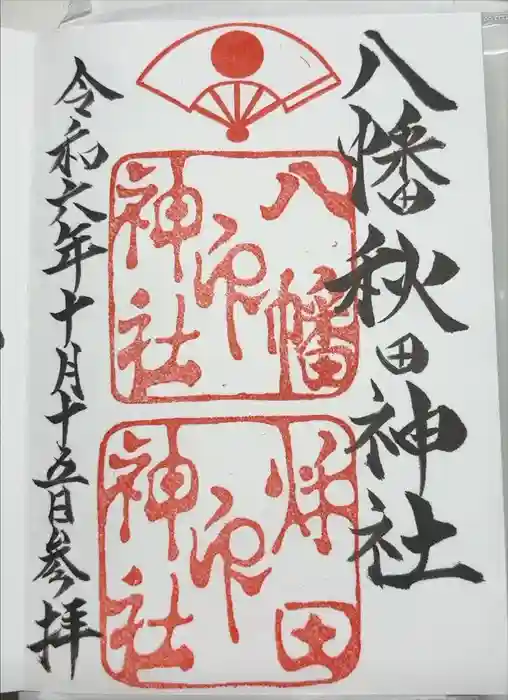 八幡秋田神社
八幡
神社
印
秋田
神社
印
令和六年十月十五日参拝